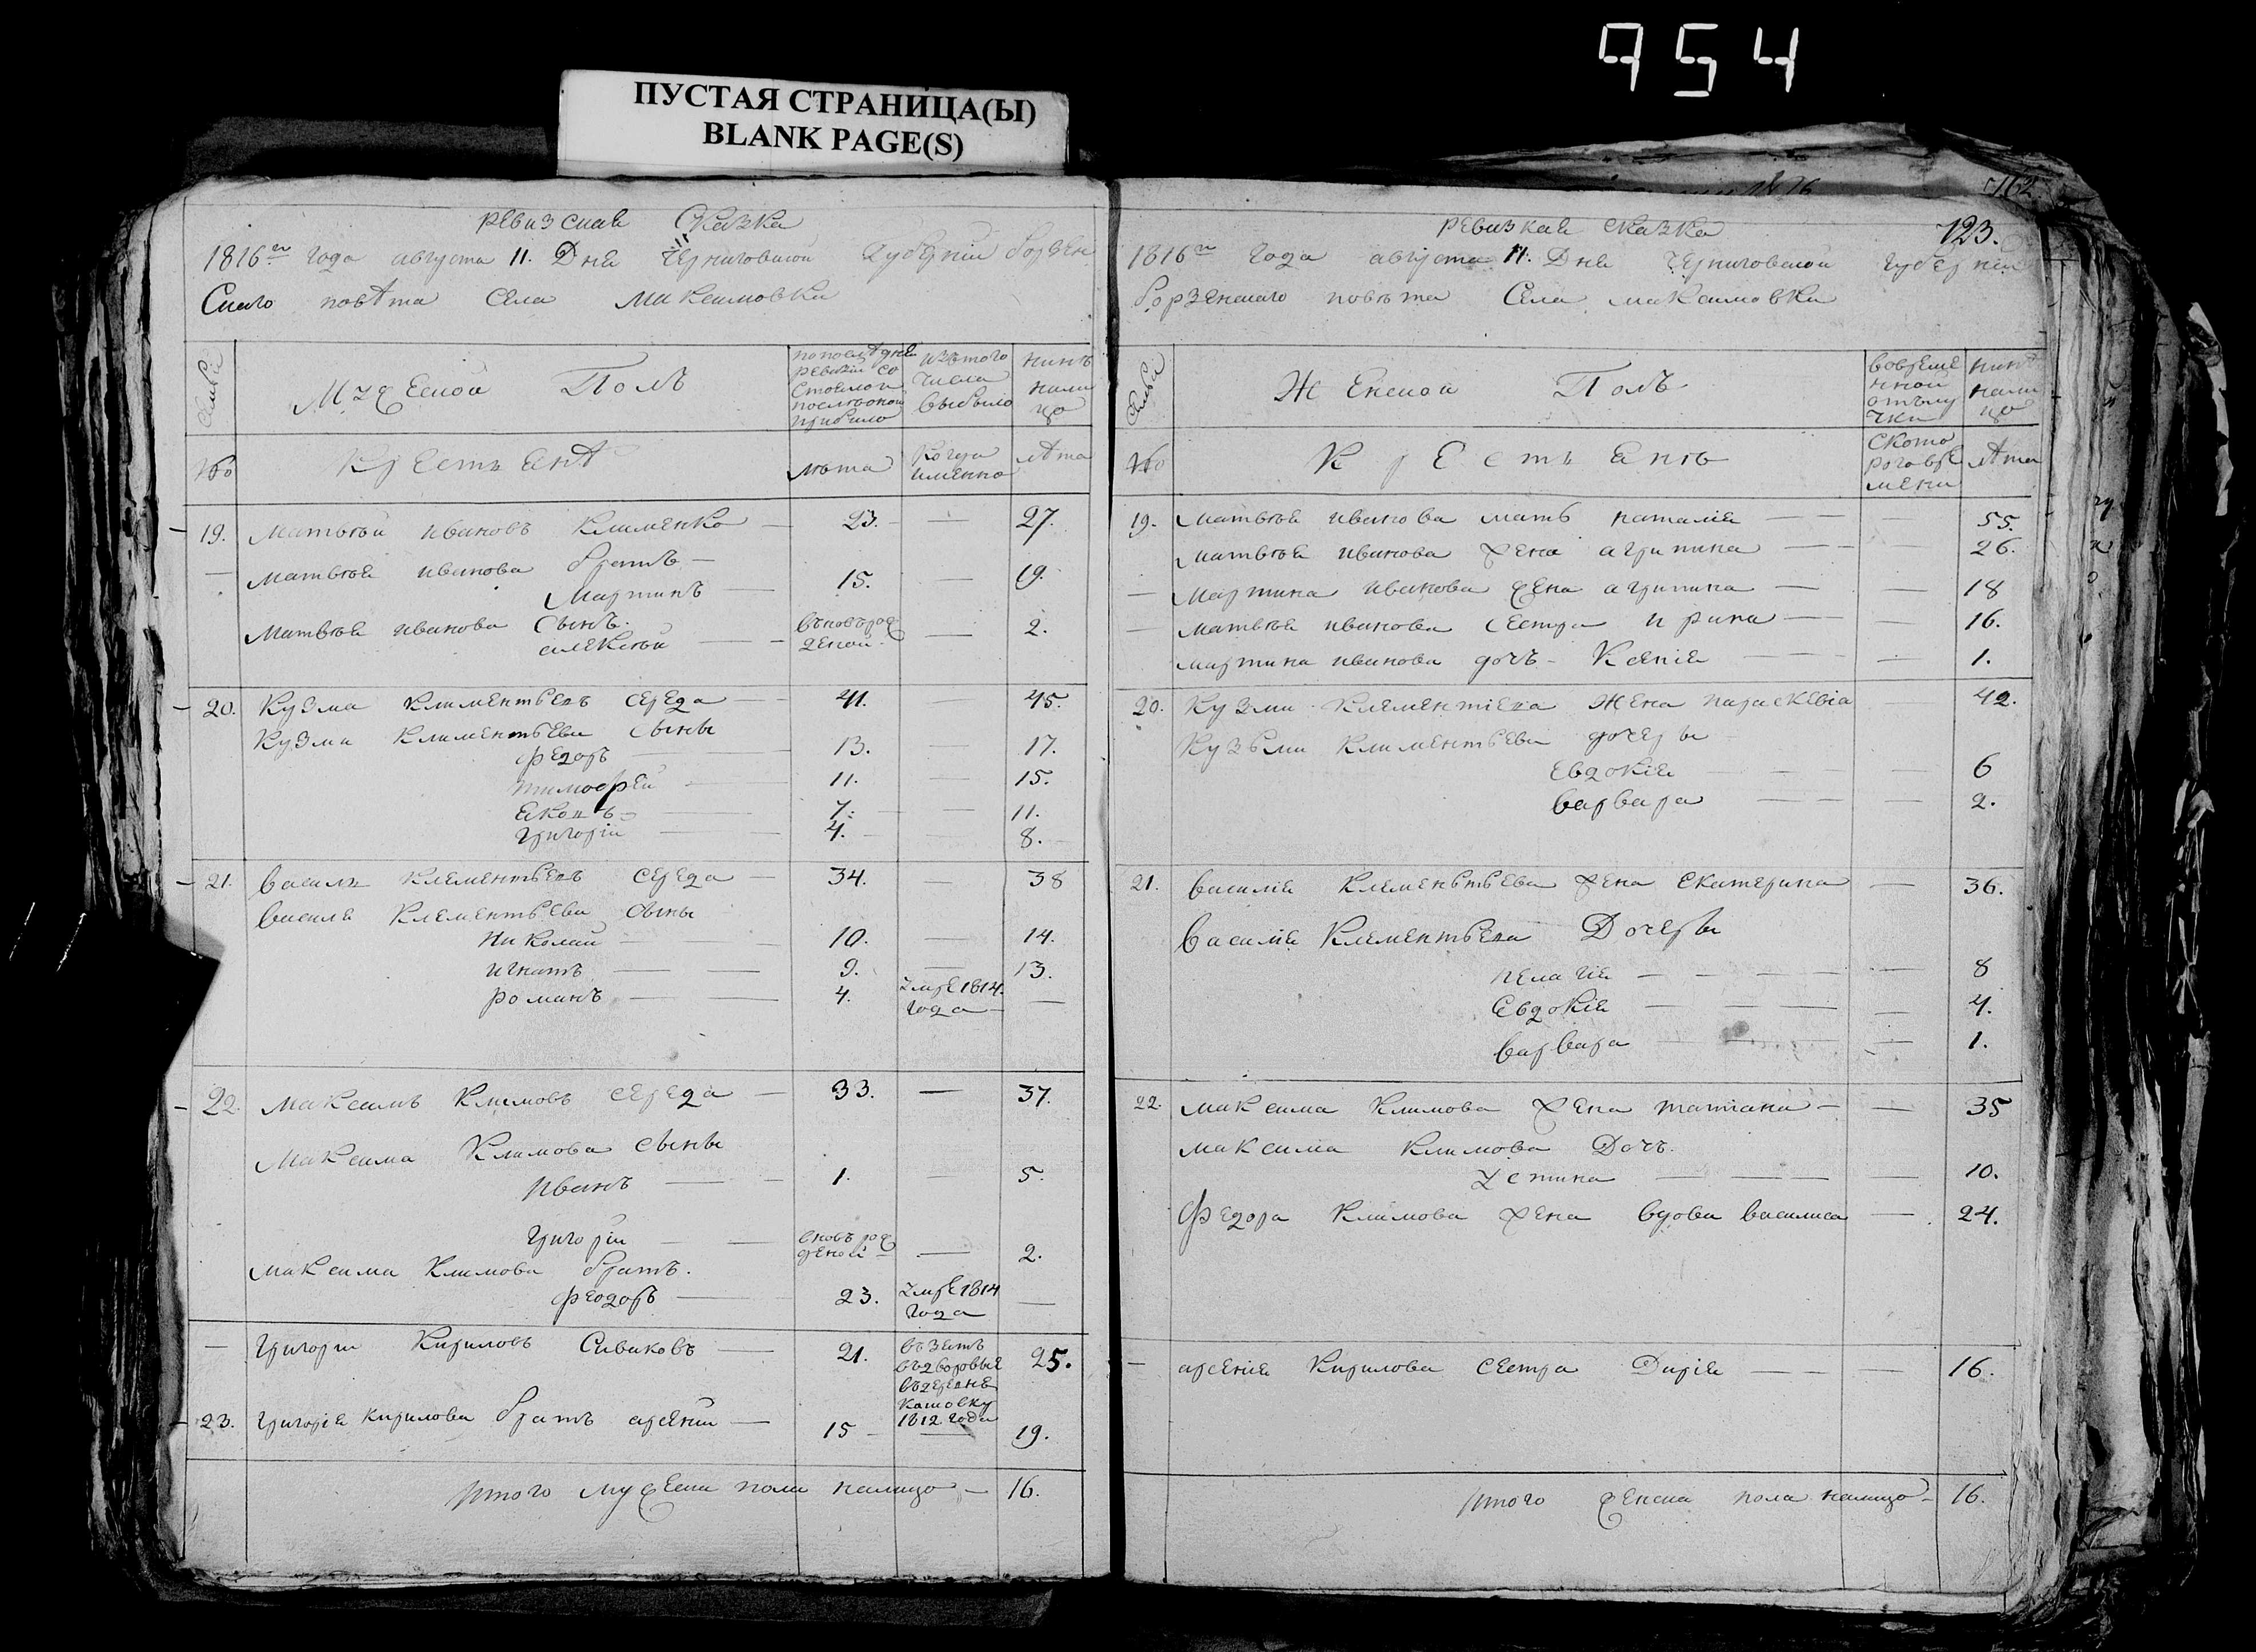 954
ПУСТАЯ СТРАНИЦА(Ы)
BLANK PAGE(S)
162
ревизская Сказка
1816го года августа 11. Дня черниговской Губернии борзен
Скаго повѣта Села максимовки
Семьи
Мужеской Полъ
по последней ревизии состояло и после оной прибило
изътого числа выбыло
нинѣ налицо
№
крестьянѣ
лѣта
когда именно
лѣта
19. матвѣй ивановъ клименко — 23. — 27.
матвѣя иванова братъ —
мартинъ — 15. — 19.
матвѣя иванова Сынъ.
алексѣй — вновърожденой — 2.
20. кузма климентьевъ середа — 41. — 45.
кузми климентьева сыны
федоръ — 13. — 17.
тимофей — 11. — 15.
яковъ — 7. — 11.
григорій — 4. — 8.
21. василь клементьевъ середа — 34. — 38
василя клементьева сыны
николай — 10. — 14.
игнатъ — 9. — 13.
романъ — 4. умре 1814. года —
22. максимъ климовъ середа — 33. — 37.
максима климова сыны
иванъ — 1. — 5.
григорій — вновърожденой — 2.
максима климова братъ.
феодоръ — 23. умре 1814 года —
— григорій кириловъ Сиваковъ — 21. взятъ въдворовые въдеревне 1812 года 25.
23. григорія кирилова братъ арсений — 15 — 19.
итого мужеска пола налицо — 16.
ревизкая сказка
123.
1816го года августа 11. Дня черниговской губернии
борзенскаго повѣта Села максимовки
Семьи
Женской Полъ
вовремянной отълучки
нинѣ налицо
№
крестьянъ
Скоторого времени
лѣта
19. матвѣя иванова мать наталия — — 55.
матвѣя иванова жена агрипина — — 26.
мартина иванова жена агрипина — — 18
матвѣя иванова сестра ирина — — 16.
мартина иванова дочь — ксения — — 1.
20. кузми клементиева жена параскевіа — 42.
кузьми климентьева дочеры
Евдокія — — 6
варвара — — 2.
21. василія клеменьтьева жена екатерина — 36.
василія клементьева Дочеры
пелагія — — 8
Евдокія — — 4.
варвара — — 1.
22. максима климова жена татіана — — 35
максима климова Дочь.
устина — — 10.
федора климова жена вдова василиса — 24.
— арсенія кирилова сестра Дарія — — 16.
итого женска пола налицо — 16.